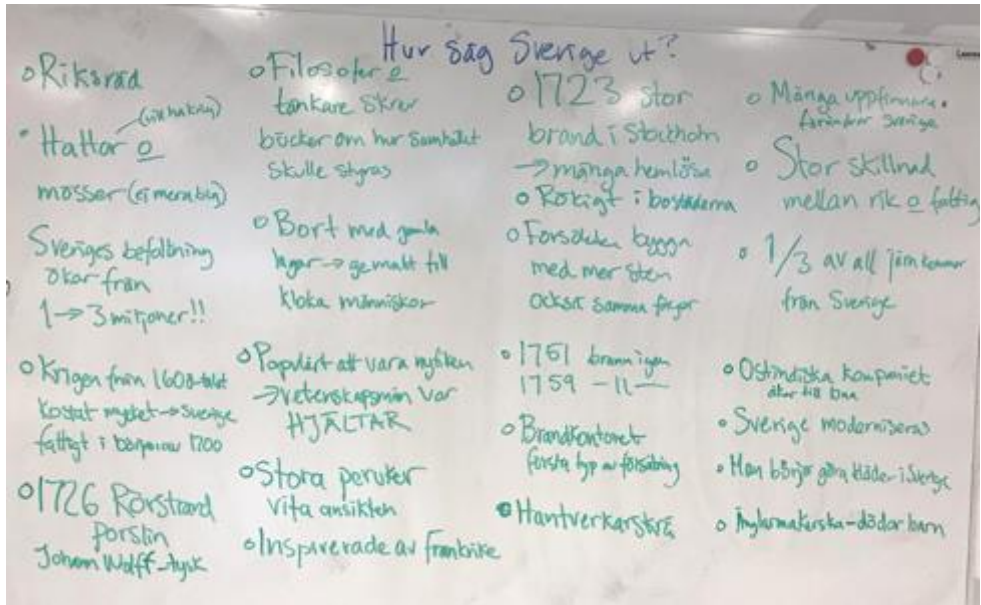 Hur såg Sverige ut?
o Riksråd
• Hattar o
mössor (ej mera krig)
Sveriges befolkning
ökar från
1→3 miljoner!!
o Krigen från 1600-talet
kostat mycket → Sverige
fattigt i början av 1700
o 1726 Rörstrand
porslin
Johann Wolff - tysk
o Filosofer o
tänkare skrev
böcker om hur samhället
skulle styras
o Bort med gamla
lagar → ge makt till
kloka människor
o Populärt att vara nyfiken
→ vetenskapsmän var
HJÄLTAR
o Stora peruker
vita ansikten
o Inspirerade av frankrike
o 1723 stor
brand i Stockholm
→ många hemlösa
o Rökigt i bostäderna
o Försökte bygga
med mer sten
också samma färger
• 1751 brann igen
1759 -11-
o Brandkontoret
första typ av försäkring
o Hantverkarskrå
o Många uppfinnare
förändrar Sverige
o Stor skillnad
mellan rik o fattig
o 1/3 av all järn kommer
från Sverige
• Ostindiska kompaniet
åker till
• Sverige moderniseras
• Man börjar göra kläder i Sverige
o Änglamakerska - dödar barn